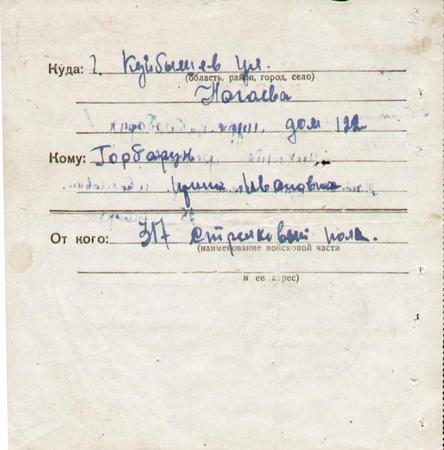 Куда: г. Куйбышев ул.
(область, район, город, село)
Ногаева
дом 122
Кому: Горбарук
Ирина Ивановна
От кого: 317 стрелковый полк.
(наименование войсковой части
и ее адрес)